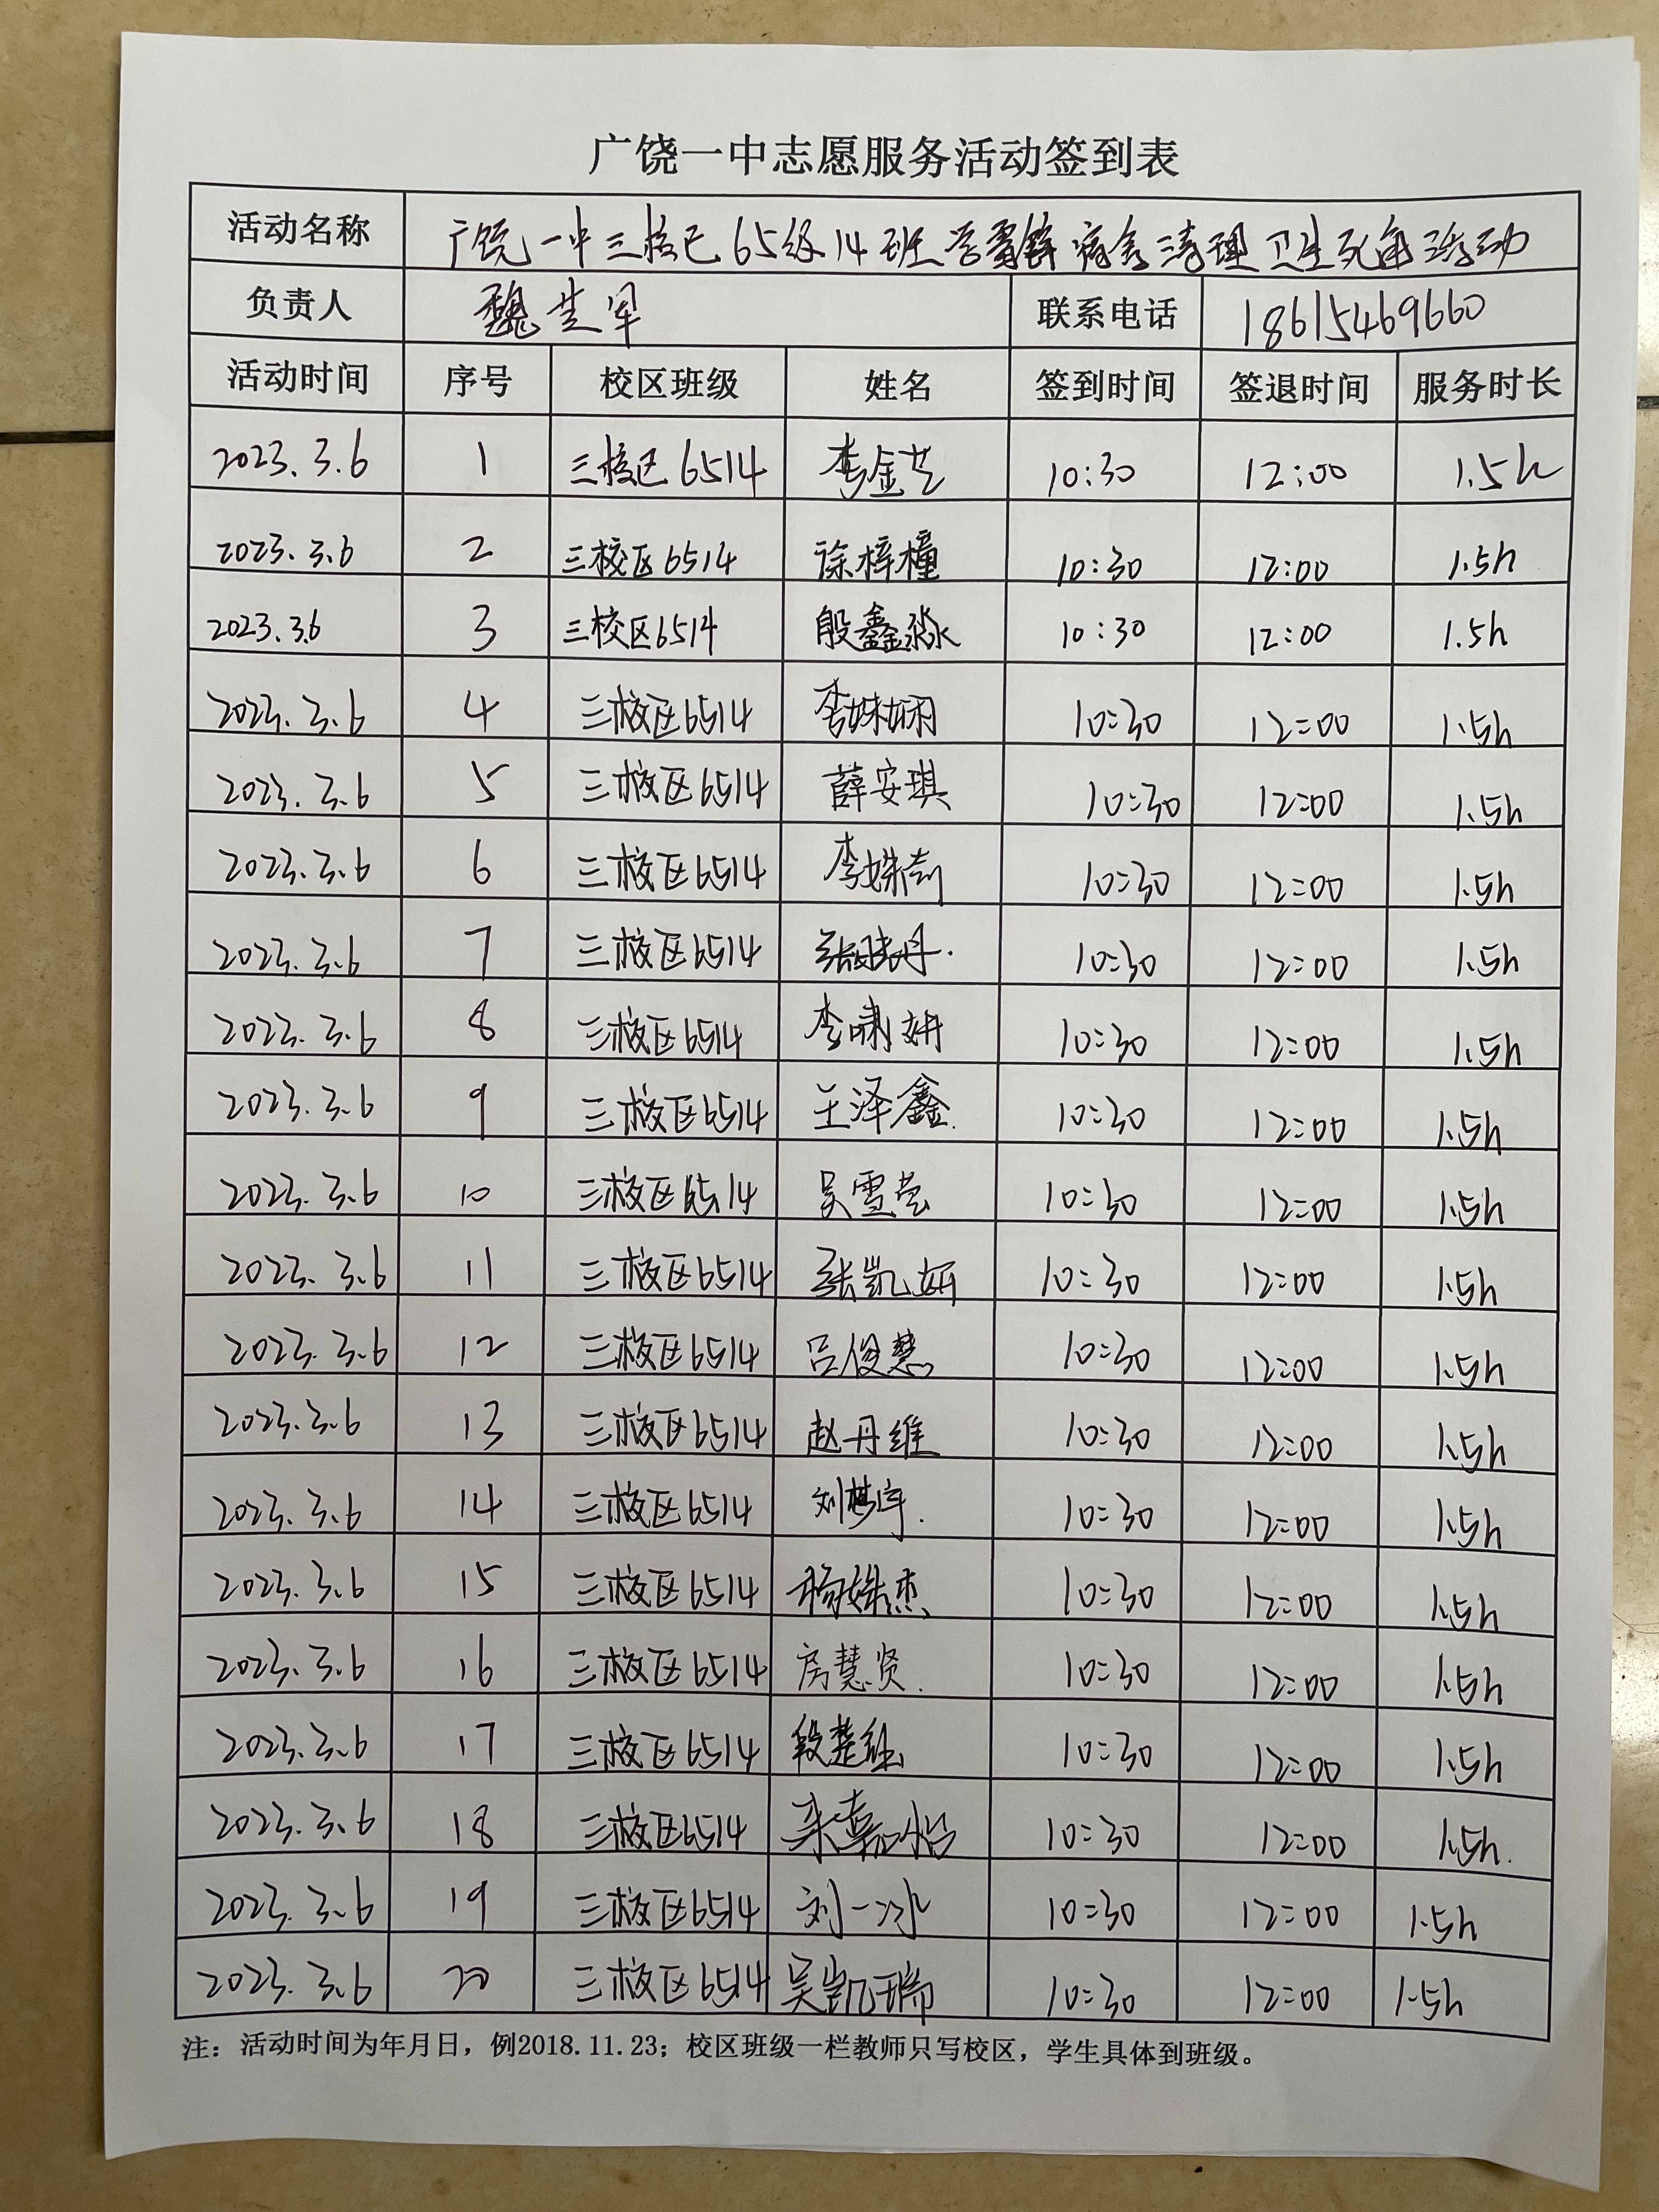 广饶一中志愿服务活动签到表
活动名称 广饶一中三校区65级14班学雷锋宿舍清理卫生死角活动
负责人 魏芝军 联系电话 18615469660
活动时间 序号 校区班级 姓名 签到时间 签退时间 服务时长
2023.3.6 1 三校区6514 李金芝 10:30 12:00 1.5h
2023.3.6 2 三校区6514 徐梓橦 10:30 12:00 1.5h
2023.3.6 3 三校区6514 殷鑫淼 10:30 12:00 1.5h
2023.3.6 4 三校区6514 李姝娴 10:30 12:00 1.5h
2023.3.6 5 三校区6514 薛安琪 10:30 12:00 1.5h
2023.3.6 6 三校区6514 10:30 12:00 1.5h
2023.3.6 7 三校区6514 10:30 12:00 1.5h
2023.3.6 8 三校区6514 李啸妍 10:30 12:00 1.5h
2023.3.6 9 三校区6514 王泽鑫. 10:30 12:00 1.5h
2023.3.6 10 三校区6514 吴雪莹 10:30 12:00 1.5h
2023.3.6 11 三校区6514 张凯妍 10:30 12:00 1.5h
2023.3.6 12 三校区6514 吕俊慧 10:30 12:00 1.5h
2023.3.6 13 三校区6514 赵丹维 10:30 12:00 1.5h
2023.3.6 14 三校区6514 10:30 12:00 1.5h
2023.3.6 15 三校区6514 杨姝杰 10:30 12:00 1.5h
2023.3.6 16 三校区6514 房慧贤. 10:30 12:00 1.5h
2023.3.6 17 三校区6514 10:30 12:00 1.5h
2023.3.6 18 三校区6514 10:30 12:00 1.5h.
2023.3.6 19 三校区6514 刘一冰 10:30 12:00 1.5h
2023.3.6 20 三校区6514 吴凯瑞 10:30 12:00 1.5h
注：活动时间为年月日，例2018.11.23；校区班级一栏教师只写校区，学生具体到班级。